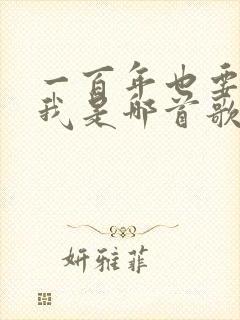 一百年也要
我是哪首歌
妍雅菲